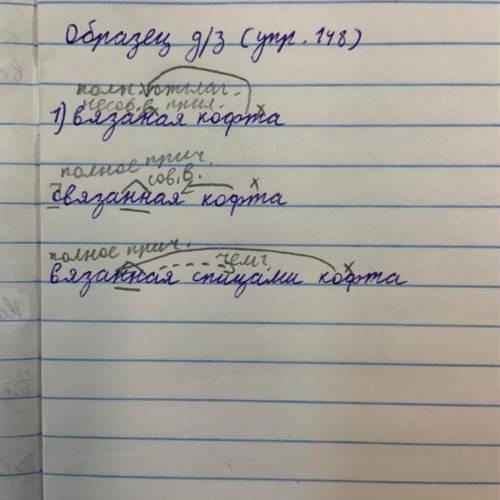 Образец д/з (упр. 148)
полн. отглаг.
несов.в. прил.
1) вязаная кофта
полное прич.
сов.в.
связанная кофта
полное прич.
чем?
вязанная спицами кофта